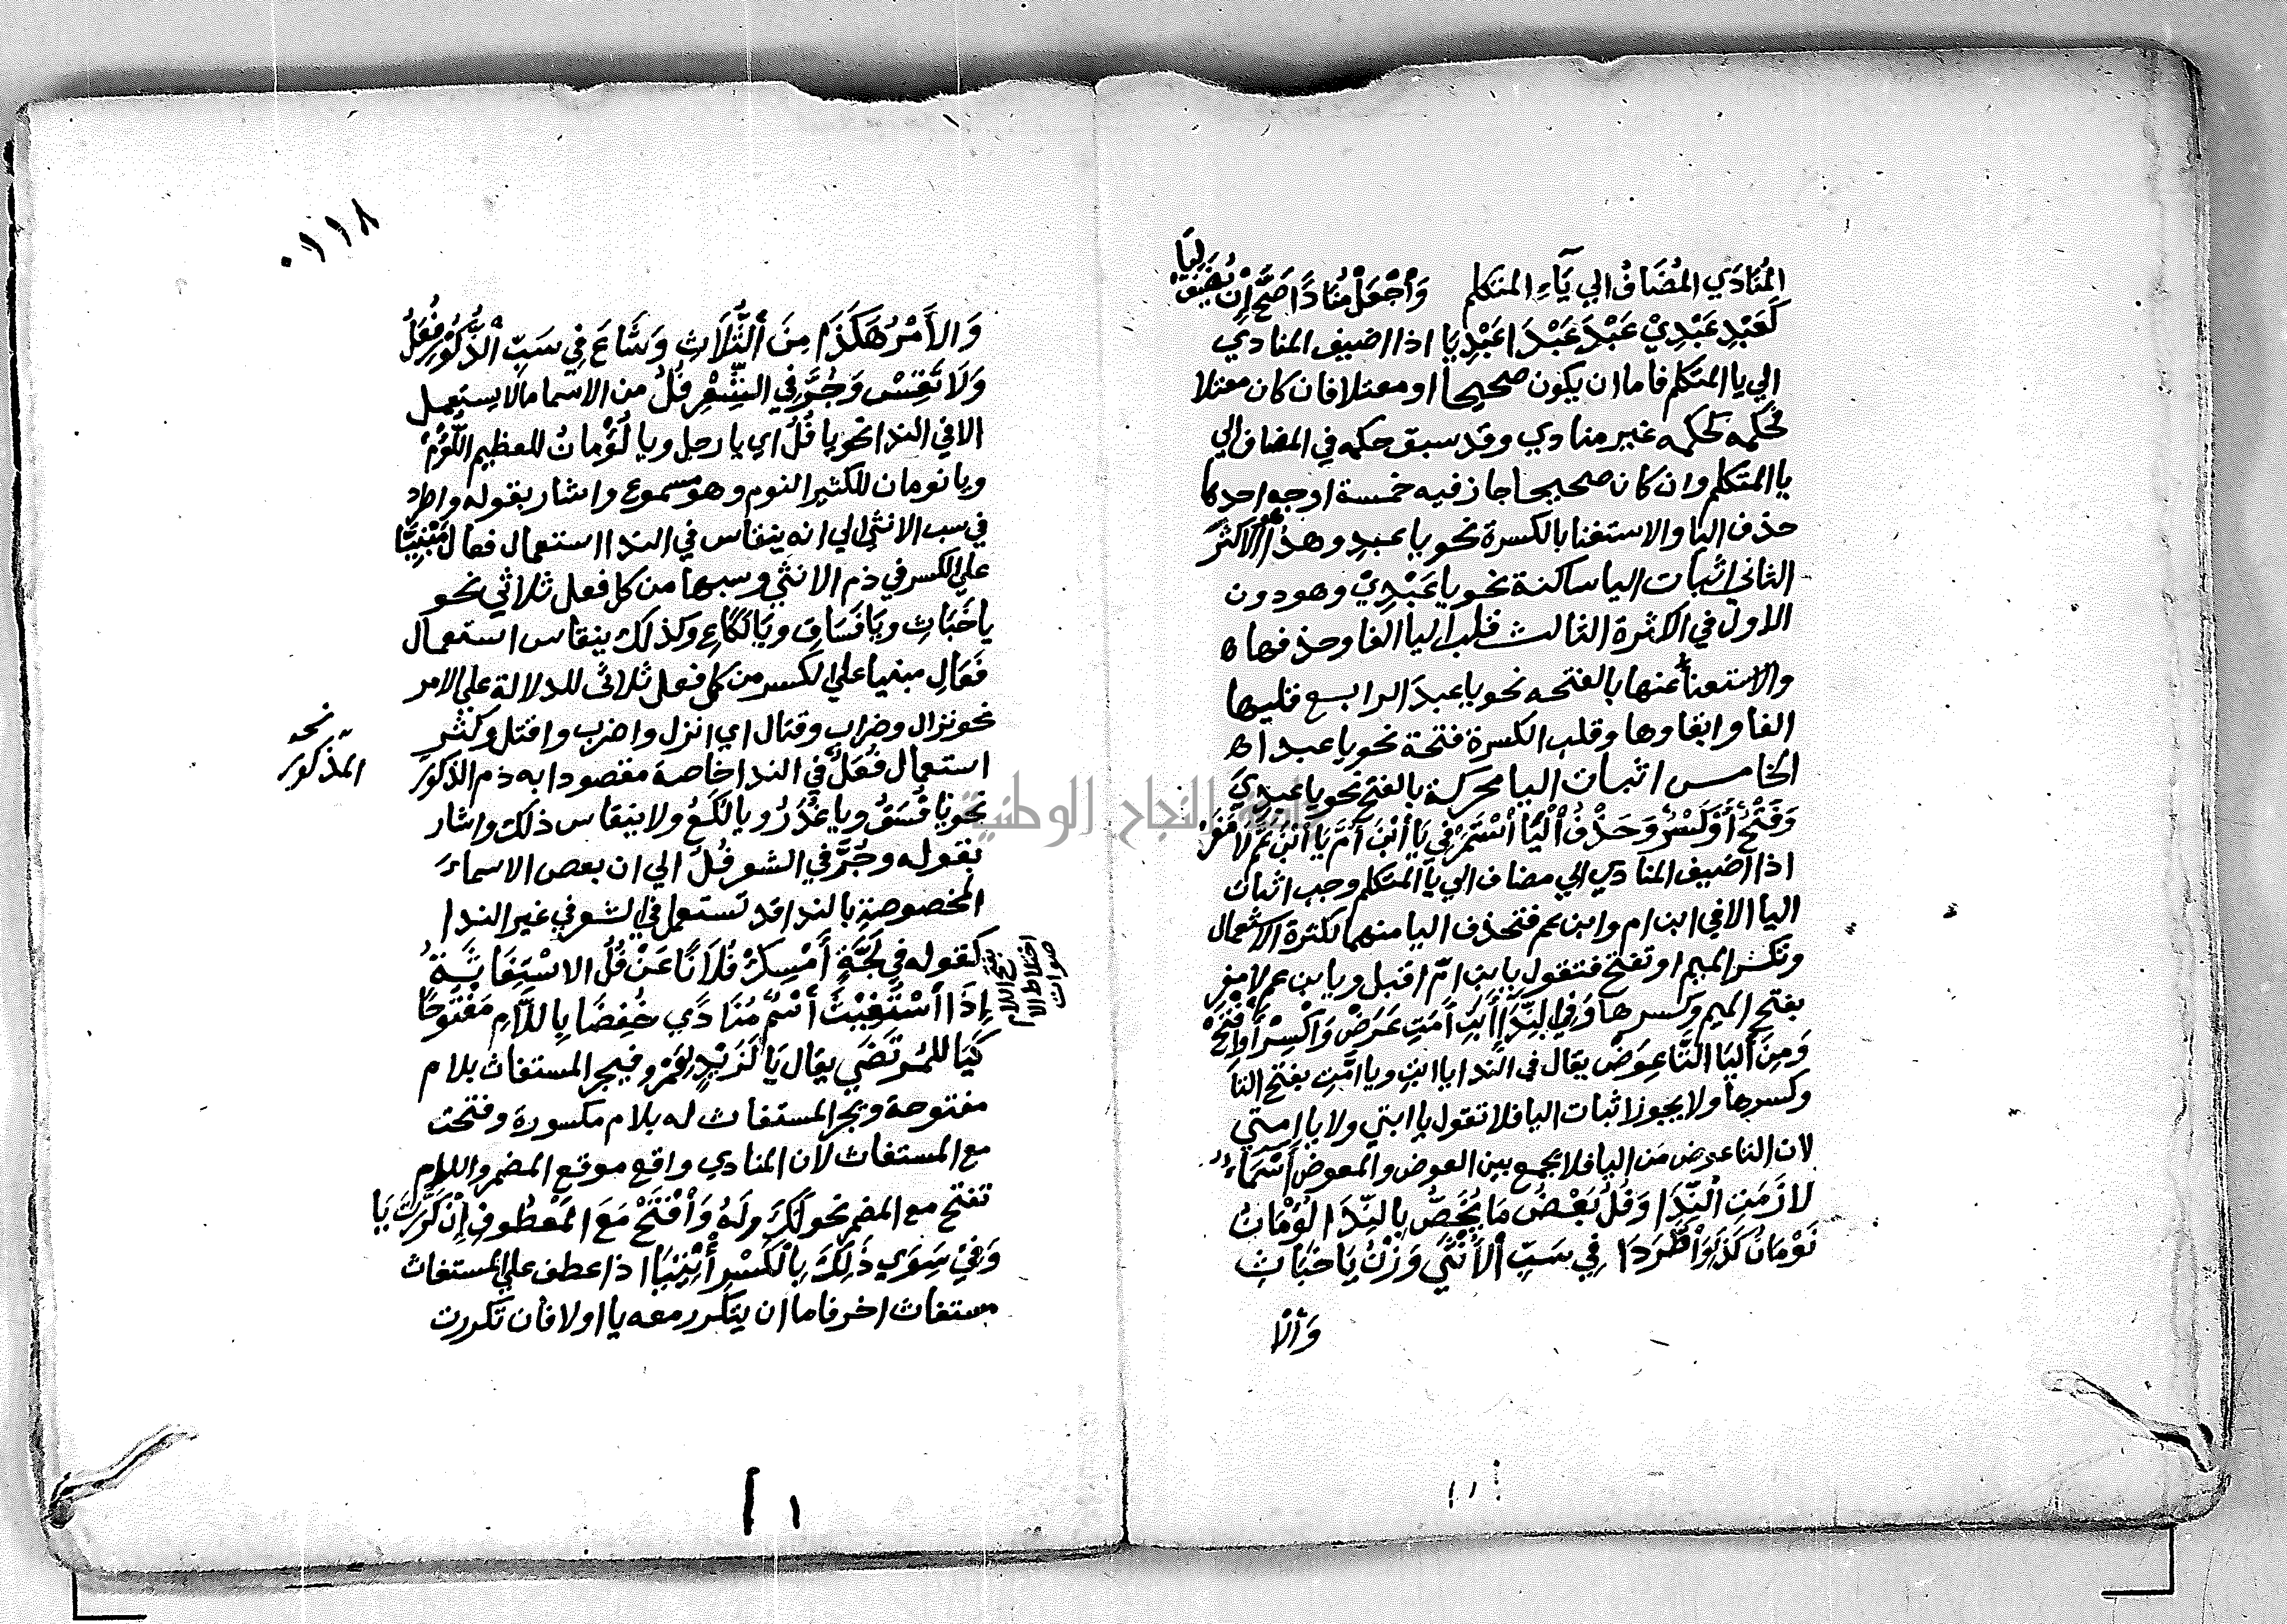 المُنَادَي المُضَافُ الي يَآءِ المتكلم وَأجْعَلْ مُنَادًا صَحَّ إِنْ يُضَفْ لِيَا
كَعَبْدِ عَبْدِيْ عَبْدَ عَبْدَا عَبْدِيَا اذا اضيف المنادي
الي يا المتكلم فاما ان يكون صحيحا او معتلا فان كان معتلا
فحكمه كحكمه غير منادي وقد سبق حكمه في المضاف الي
يا المتكلم وان كان صحيحا جاز فيه خمسة اوجه احدها
حذف اليا والاستغنا بالكسرة نحو يا عبدِ وهذا هو الاكثر
الثاني اثبات اليا ساكنة نحو يا عَبْدِيْ وهو دون
الاول في الاكثرة الثالث قلب اليا الفا وحذفها
والاستغنأ عنها بالفتحه نحو يا عبدَ الرابع قلبها
الفا وابقاوها وقلب الكسرة فتحة نحو يا عبدا
الخامس اثبات اليا محركة بالفتح نحو يا عبديَ
وَفَتْحٌ أوْ كَسْرٌ وَحَذْفُ أليَا أسْتَمَرّ في يَا أبْنَ أمَّ يَا أبْنَ عَمَّ لَا مَفَرْ
اذا اضيف المنادي الي مضاف الي يا المتكلم وجب اثبات
اليا الا في ابن ام وابن عم فتحذف اليا منهما لكثرة الاستعمال
وتكسر الميم او تفتح فتقول يا بن امّ اقبل ويا بن عم لا مفر
بفتح الميم وكسرها وَفِي النِّدَا أَبَتِ أمَتِ عَرَضْ وَاكْسِرْ أوِ افْتَحْ
وَمِنَ أليَا التَّا عِوَضْ يقال في الندا يا ابتِ ويا امَّتِ بفتح التا
وكسرها ولا يجوز اثبات اليا فلا تقول يا ابتي ولا يا امتي
لان التا عوض من اليا فلا يجمع بين العوض والمعوض أَسْمَآءٌ
لازَمَتِ ألنِّدَا وَفُلُ بَعْضُ مَا يُخَصُّ بِالنِّدَا لُؤْمَانُ
نَوْمَانُ كَذَا وَأطَّرَدَا فِي سَبِّ ألاُنْثَي وَزْنُ يَا خَبَاثِ
وَألا
٠١١٨
وَالأَمْرُ هَكَذَا مِنَ ألثُّلَاثِ وَشَاعَ فِي سَبِّ ألذُّكُوْرِ فُعَلُ
وَلَا تَقِسْ وَجُرَّ فِي الشِّعْرِ فُلُ من الاسما ما لا يستعمل
الا في الندا نحو يا فُلُ اي يا رجل ويا لُؤْمانُ للعظيم اللُّؤْم
ويا نومان للكثير النوم وهو مسموع واشار بقوله واطرد
في سب الانثي الي انه ينقاس في الندا استعمال فعال مَبْنِيًّا
علي الكسر في ذم الانثي وسبها من كل فعل ثلاثي نحو
يا خَبَاثِ ويَا فَسَاقِ ويَا لَكَاعِ وكذلك ينقاس استعمال
فَعَالِ مبنيا علي الكسر من كل فعل ثلاثي للدلالة علي الامر
نحو نزال وضراب وقتال اي انزل واضرب واقتل وكثر
استعمال فُعَلُ في الندا خاصة مقصودا به ذم الذكور
نحو يا فُسَقُ ويا غُدَرُ ويا لُكَعُ ولا ينقاس ذلك واشار
بقوله وجُرَّ في الشعر فُلُ الي ان بعض الاسماء
المخصوصة بالندا قد تستعمل في الشعر في غير الندا
كقوله في لَجَّةٍ أمْسِكْ فُلَانًا عَنْ فُلِ الاسْتِغَاثَةُ
إِذَا أسْتُغِيْثَ أسْمٌ مُنَادًي خُفِضَا بِاللَّامِ مَفْتُوحًا
كَيَا للمُرْتَضَي يقال يَا لَزَيْدٍ لِعَمْرٍو فيجر المستغاث بلام
مفتوحة ويجر المستغاث له بلام مكسورة وفتحت
مع المستغاث لان المنادي واقع موقع المضمر واللام
تفتح مع المضمر نحو لَكَ ولَهُ وَأفْتَحْ مَعَ المَعْطُوفِ إِنْ كَرَّرْتَ يَا
وَفِيْ سِوَي ذَلِكَ بِالكَسْرِ أئْتِيَا اذا عطف علي المستغاث
مستغاث اخر فاما ان يتكرر معه يا او لا فان تكررت
نحه
المذكور
بفتح اللام
اختلاط الا
صوات
جامعة النجاح الوطنية
١